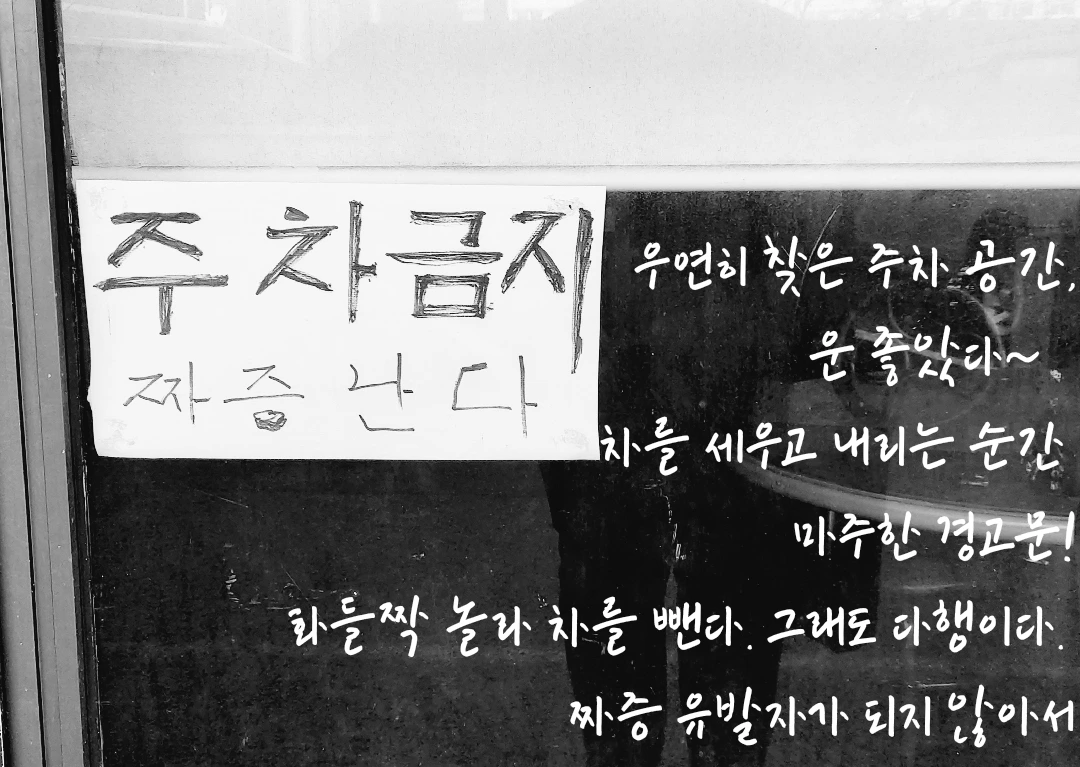 주차금지
짜증난다
우연히 찾은 주차 공간,
운 좋았다~
차를 세우고 내리는 순간
마주한 경고문!
화들짝 놀라 차를 뺀다. 그래도 다행이다.
짜증 유발자가 되지 않아서